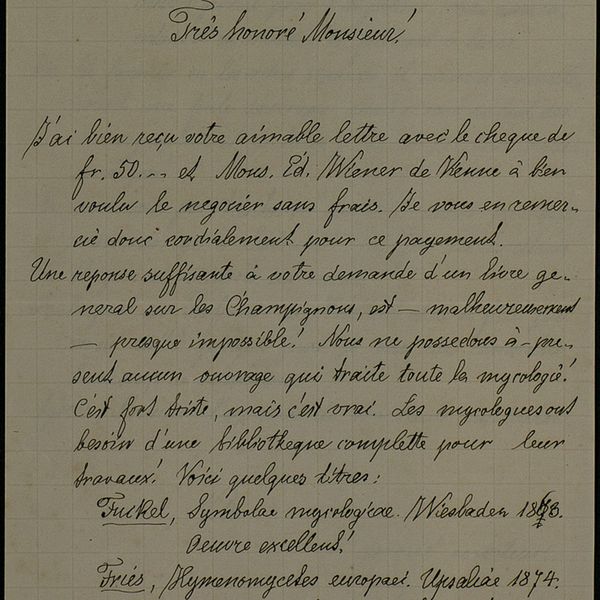 Très honoré Monsieur!
J'ai bien reçu votre aimable lettre avec le cheque de
fr. 50.-- et Mons. Ed. Wiener de Vienne à bien
voulu le negocier sans frais. Je vous en remer-
cie donc cordialement pour ce payement.
Une reponse suffisante à votre demande d'un livre ge-
neral sur les Champignons, est — malheureusement
— presque impossible! Nous ne possedons à-pre-
sent aucun ouvrage qui traite toute la mycologie!
C'est fort triste, mais c'est vrai. Les mycologues ont
besoin d'une bibliotheque complette pour leur
travaux! Voici quelques titres:
Fuckel, Symbolae mycologicae. Wiesbaden
Oeuvre excellent!
Fries, Hymenomycetes europaei. Upsaliae 1874.